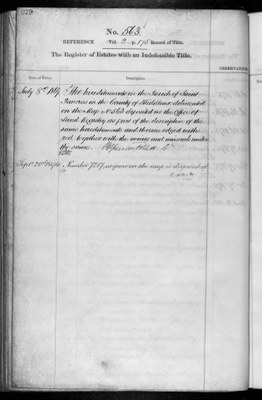 929
No. 563
REFERENCE (Vol. 2 p. 170 Record of Title.
The Register of Estates with an Indefeasible Title.
OBSERVATIONS
Date of Entry. Description.
July 8th The hereditaments in the Parish of Saint
Pancras in the County of Middlesex delineated
on the Map No 563 deposited in the Office of
Land Registry as part of the description of the
same hereditaments and thereon edged with
red together with the mines and minerals under
the same.
Number on the map is